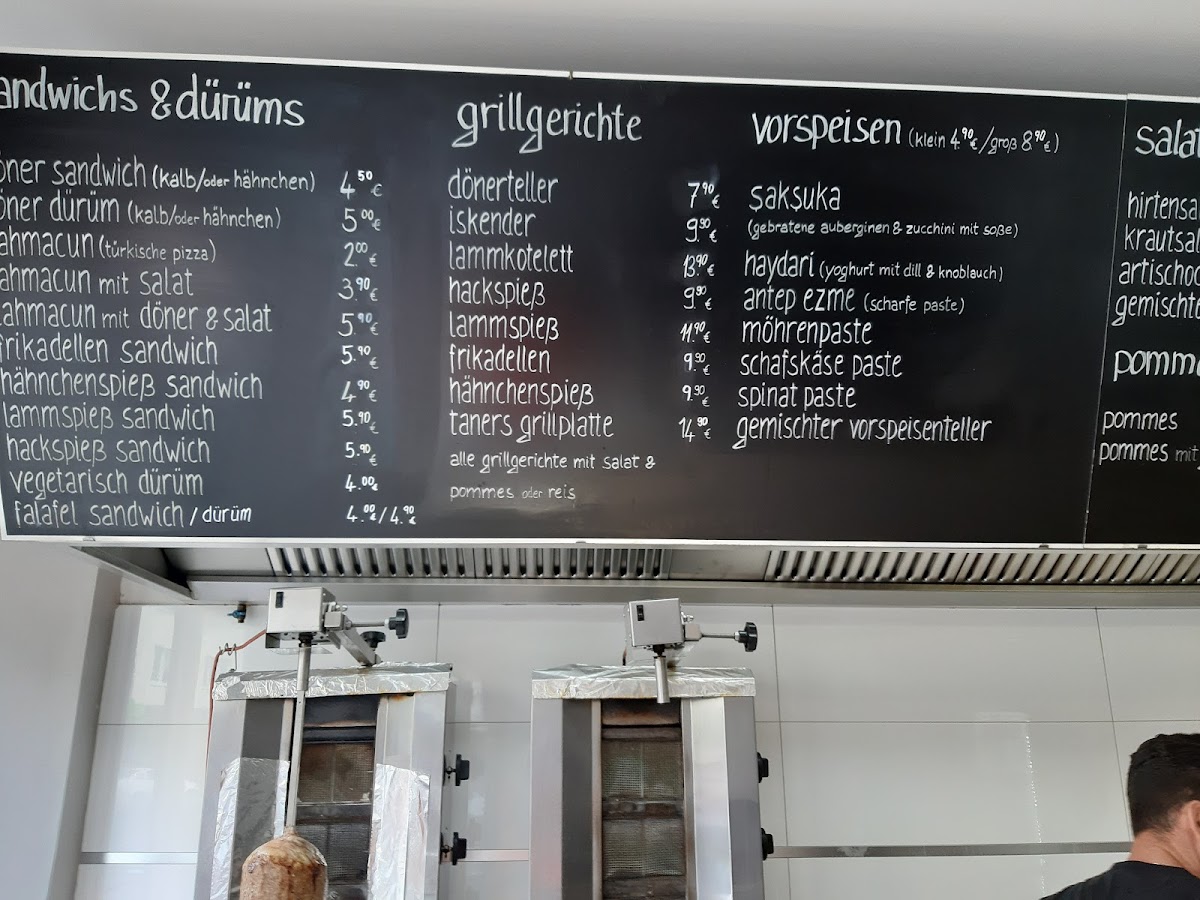 andwichs & dürüms
öner sandwich (kalb/oder hähnchen) 4.50€
öner dürüm (kalb/oder hähnchen) 5.00€
ahmacun (türkische pizza) 2.00€
ahmacun mit salat 3.90€
ahmacun mit döner & salat 5.90€
frikadellen sandwich 5.90€
hähnchenspieß sandwich 4.90€
lammspieß sandwich 5.90€
hackspieß sandwich 5.90€
vegetarisch dürüm 4.00€
falafel sandwich / dürüm 4.00€/4.90€
grillgerichte
dönerteller 7.90€
iskender 9.90€
lammkotelett 13.90€
hackspieß 9.90€
lammspieß 11.90€
frikadellen 9.90€
hähnchenspieß 9.90€
taners grillplatte 14.90€
alle grillgerichte mit salat &
pommes oder reis
vorspeisen (klein 4.90€/groß 8.90€)
şakşuka
(gebratene auberginen & zucchini mit soße)
haydari (yoghurt mit dill & knoblauch)
antep ezme (scharfe paste)
möhrenpaste
schafskäse paste
spinat paste
gemischter vorspeisenteller
salat
hirtensa
krautsal
artischo
gemischte
pomm
pommes
pommes mit